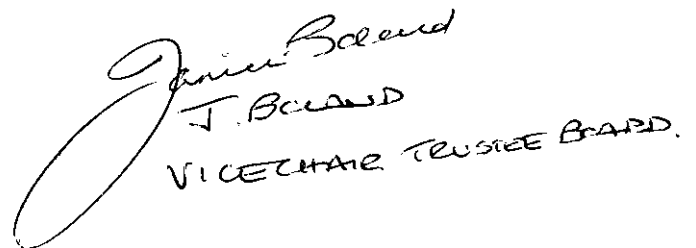 Janice Boland
J. BOLAND
VICECHAIR TRUSTEE BOARD.